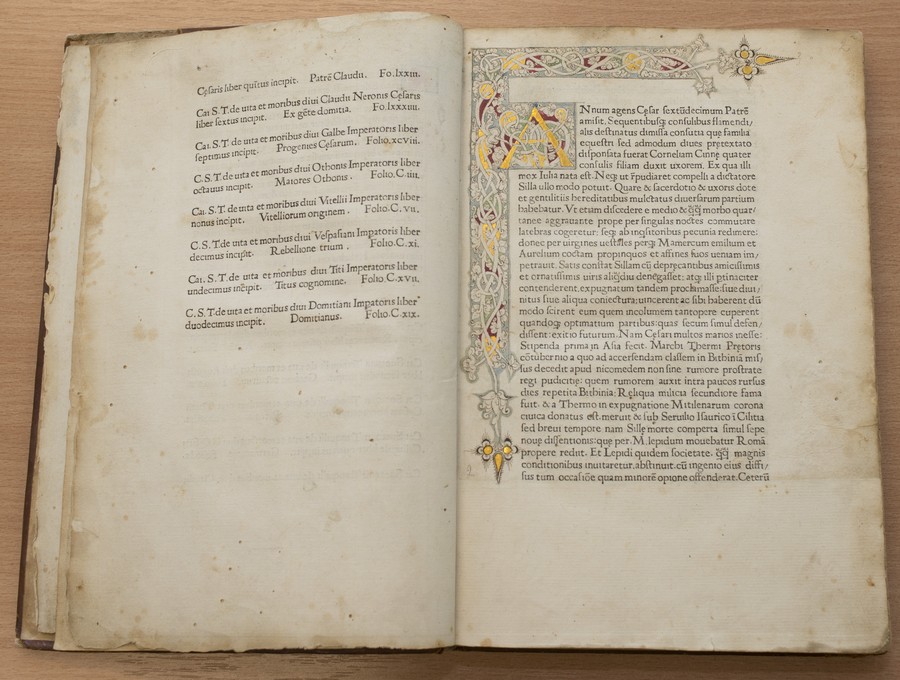 Cęsaris liber quītus incipit. Patrē Claudii. Fo.lxxiii.
Cai S.T.de uita et moribus diui Claudii Neronis Cęsaris
liber sextus incipit. Ex gēte domitia. Fo.lxxxiiii.
Cai. S.T. de uita et moribus diui Galbe Imperatoris liber
septimus incipit. Progenies Cęsarum. Folio.xcviii.
C.S.T. de uita et moribus diui Othonis Imperatoris liber
octauus incipit. Maiores Othonis. Folio.C.iii.
Cai. S.T. de uita et moribus diui Vitellii Imperatoris liber
nonus incipit. Vitelliorum originem. Folio.C.vii.
C.S.T. de uita et moribus diui Vespasiani Impatoris liber
decimus incipit. Rebellione trium. Folio.C.xi.
Cai. S.T. de uita et moribus diui Titi Imperatoris liber
undecimus incipit. Titus cognomine. Folio.C.xvii.
C.S.T.de uita et moribus diui Domitiani Impatoris liber
duodecimus incipit. Domitianus. Folio.C.xix.
ANnum agens Cęsar sextūdecimum Patrē
amisit. Sequentibusq; consulibus flamendi/
alis destinatus dimissa consutia que familia
equestri sed admodum diues pretextato
disponsata fuerat Corneliam Cinnę quater
consulis filiam duxit uxorem. Ex qua illi
mox Iulia nata est. Neq; ut repudiaret compelli a dictatore
Silla ullo modo potuit. Quare & sacerdotio & uxoris dote
et gentilitiis hereditatibus mulctatus diuersarum partium
habebatur. Vt etiam discedere e medio & q̄q̄ morbo quar/
tanee aggrauante prope per singulas noctes commutare
latebras cogeretur: seq; ab inqsitoribus pecunia redimere:
donec per uirgines uestales perq; Mamercum emilium et
Aurelium coctam propinquos et affines suos ueniam im/
petrauit. Satis constat Sillam cū deprecantibus amicissimis
et ornatissimis uiris aliqdiu denegasset: atq; illi ptinaciter
contenderent, expugnatum tandem proclamasse: siue diui/
nitus siue aliqua coniectura: uincerent ac sibi haberent dū
modo scirent eum quem incolumem tantopere cuperent
quandoq; optimatium partibus: quas secum simul defen/
dissent: exitio futurum. Nam Cęsari multos marios inesse:
Stipenda prima in Asia fecit. Marchi Thermi Pretoris
cōtubernio a quo ad accersendam classem in Bithiniā mis/
sus decedit apud nicomedem non sine rumore prostrate
regi pudicitię: quem rumorem auxit intra paucos rursus
dies repetita Bithinia: Reliqua milicia secundiore fama
fuit. & a Thermo in expugnatione Mitilenarum corona
ciuica donatus est. meruit & sub Seruilio Isaurico ī Cilitia
sed breui tempore nam Sillę morte comperta simul sepe
nouę dissentionis: que per. M. lepidum mouebatur Romā
propere rediit. Et Lepidi quidem societate. q̄q̄ magnis
conditionibus inuitaretur. abstinuit. cū ingenio eius diffi/
sus tum occasiōe quam minorē opione offenderat. Ceterū